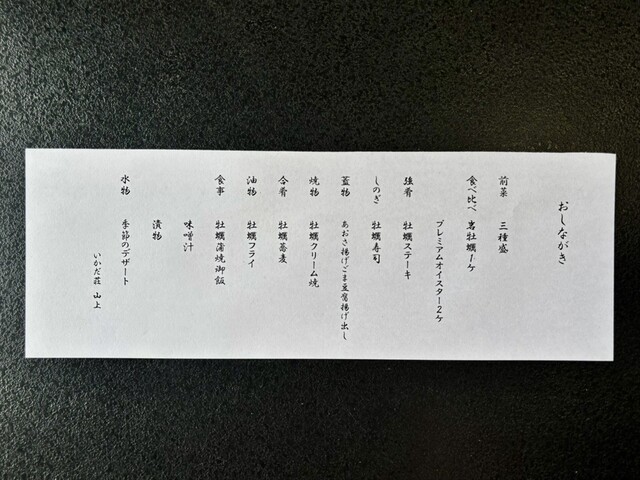 おしながき
前菜　三種盛
食べ比べ　岩牡蠣1ヶ
プレミアムオイスター2ヶ
強肴　牡蠣ステーキ
しのぎ　牡蠣寿司
蓋物　あおさ揚げごま豆腐揚げ出し
焼物　牡蠣クリーム焼
合肴　牡蠣蕎麦
油物　牡蠣フライ
食事　牡蠣蒲焼御飯
味噌汁
漬物
水物　季節のデザート
いかだ荘　山上